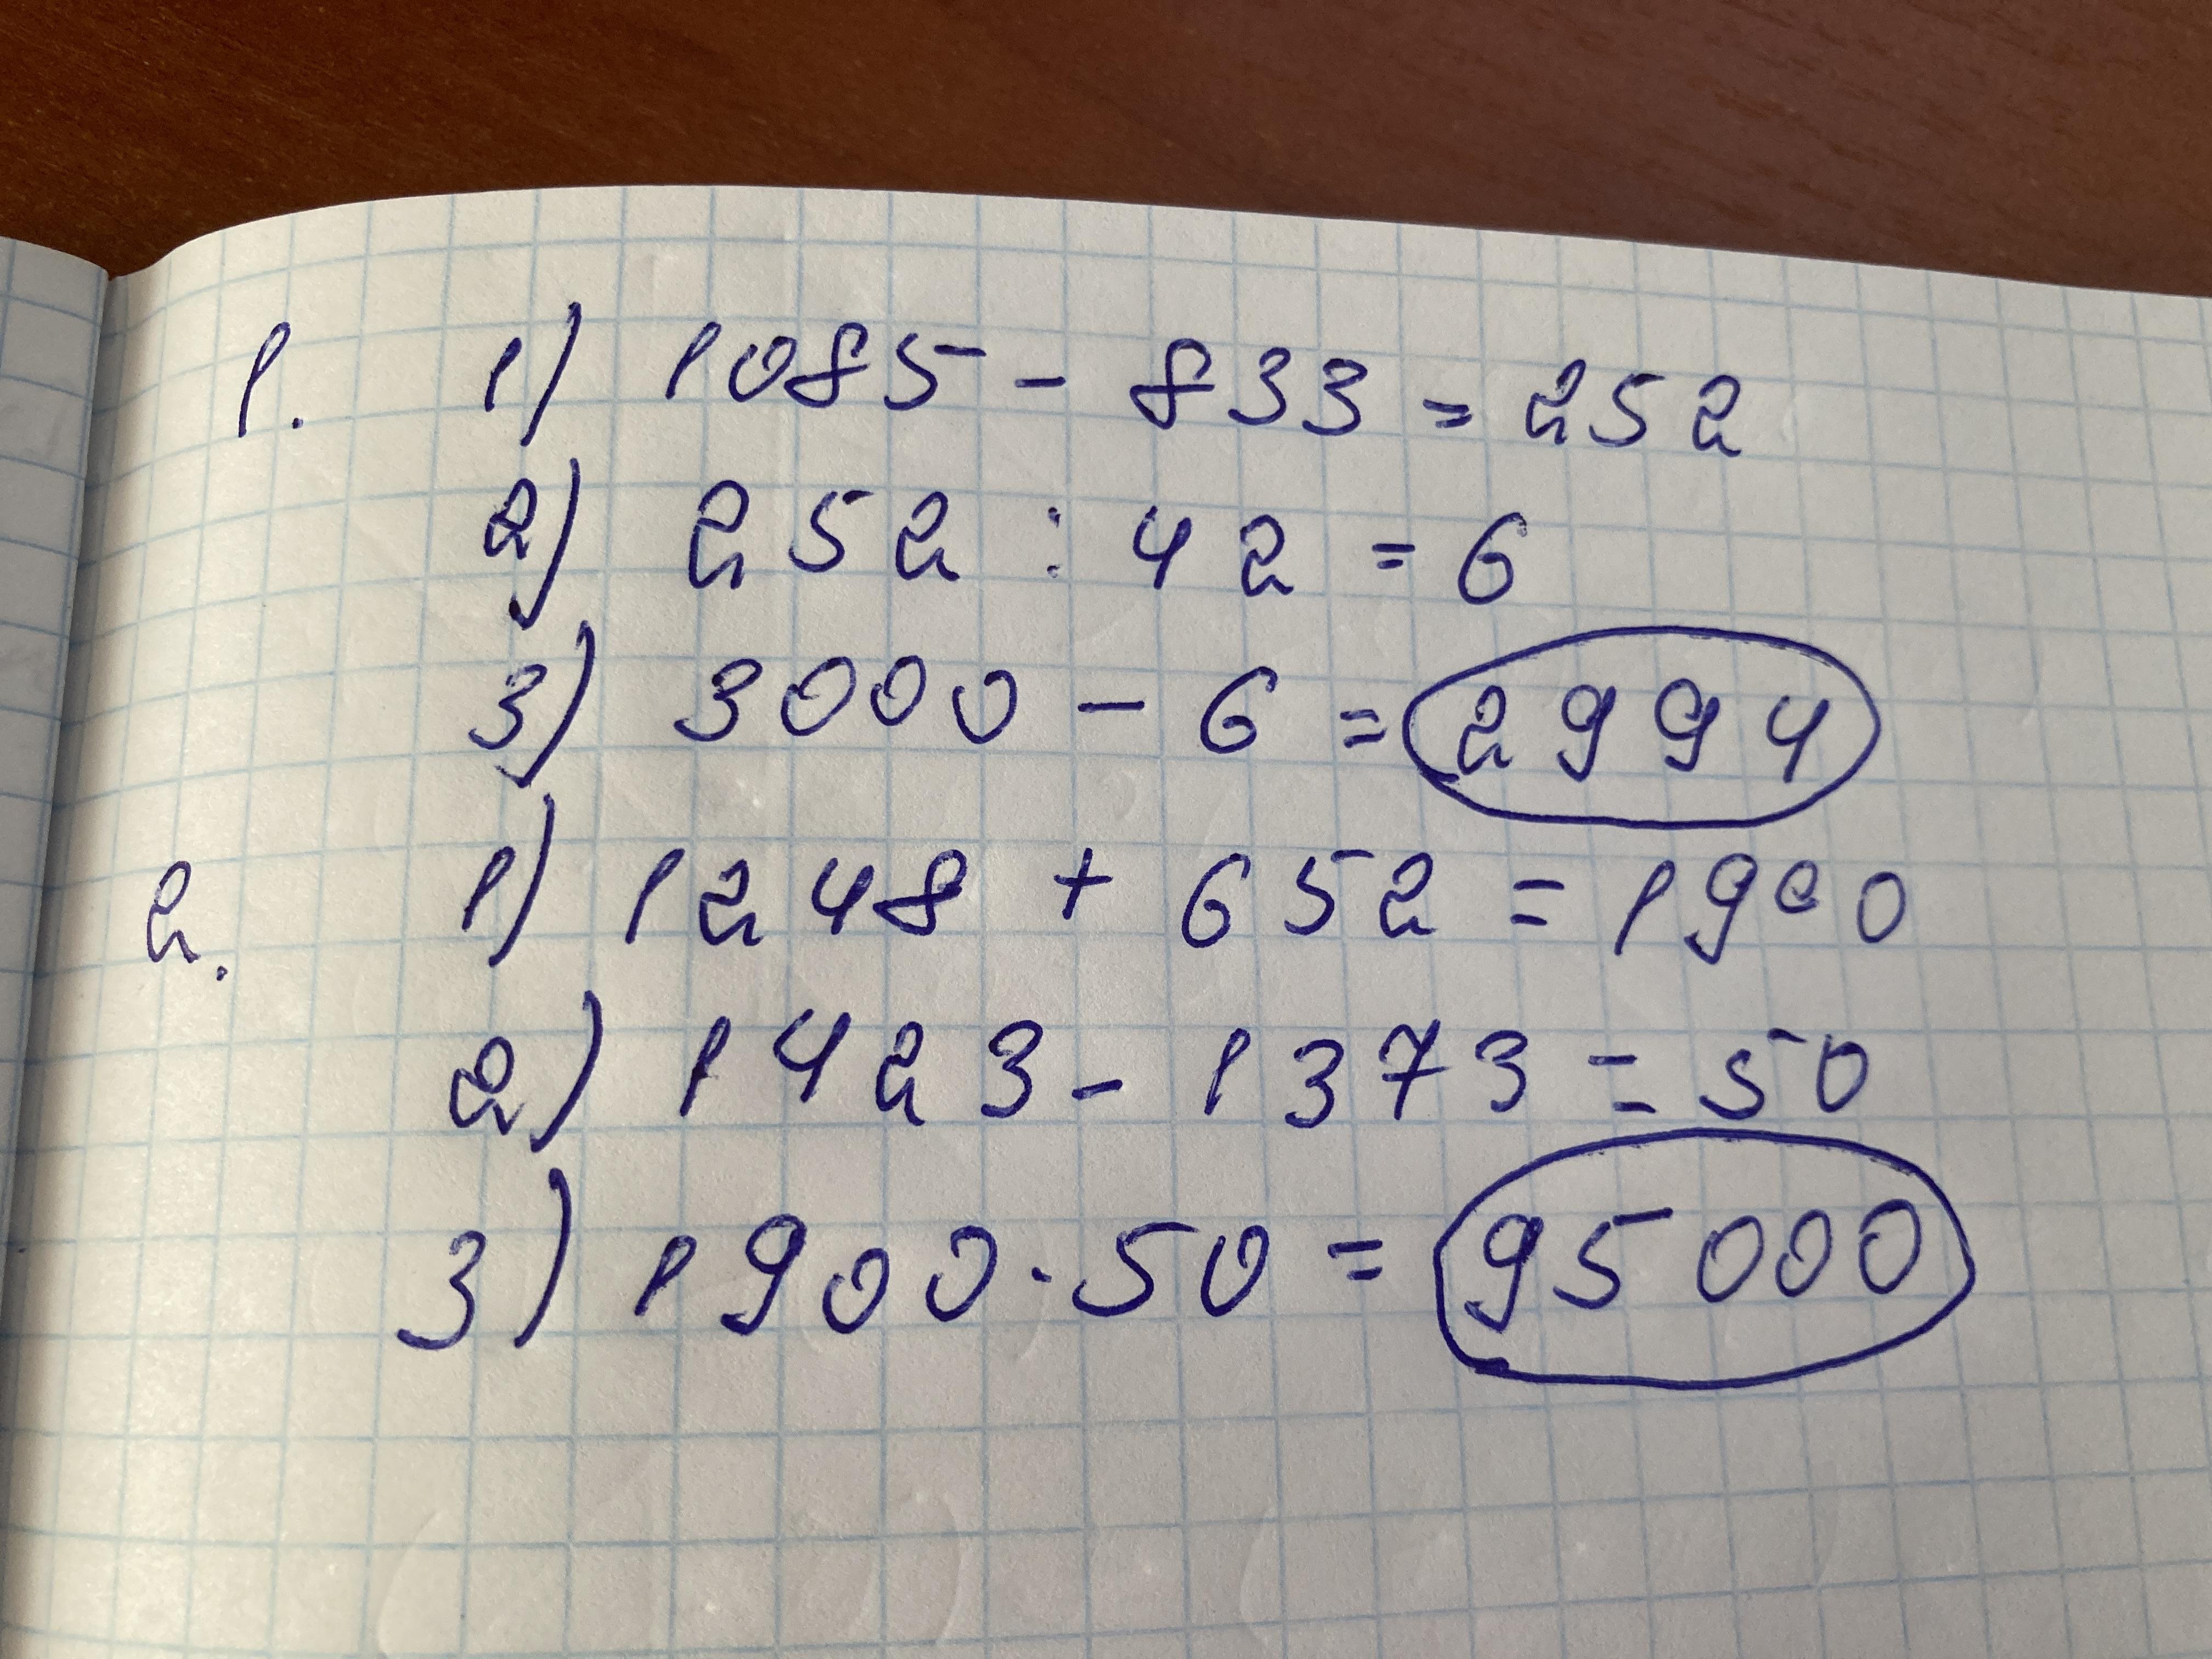 1. 1) 1085 - 833 = 252
2) 252 : 42 = 6
3) 3000 - 6 = 2994
2. 1) 1248 + 652 = 1900
2) 1423 - 1373 = 50
3) 1900 · 50 = 95000